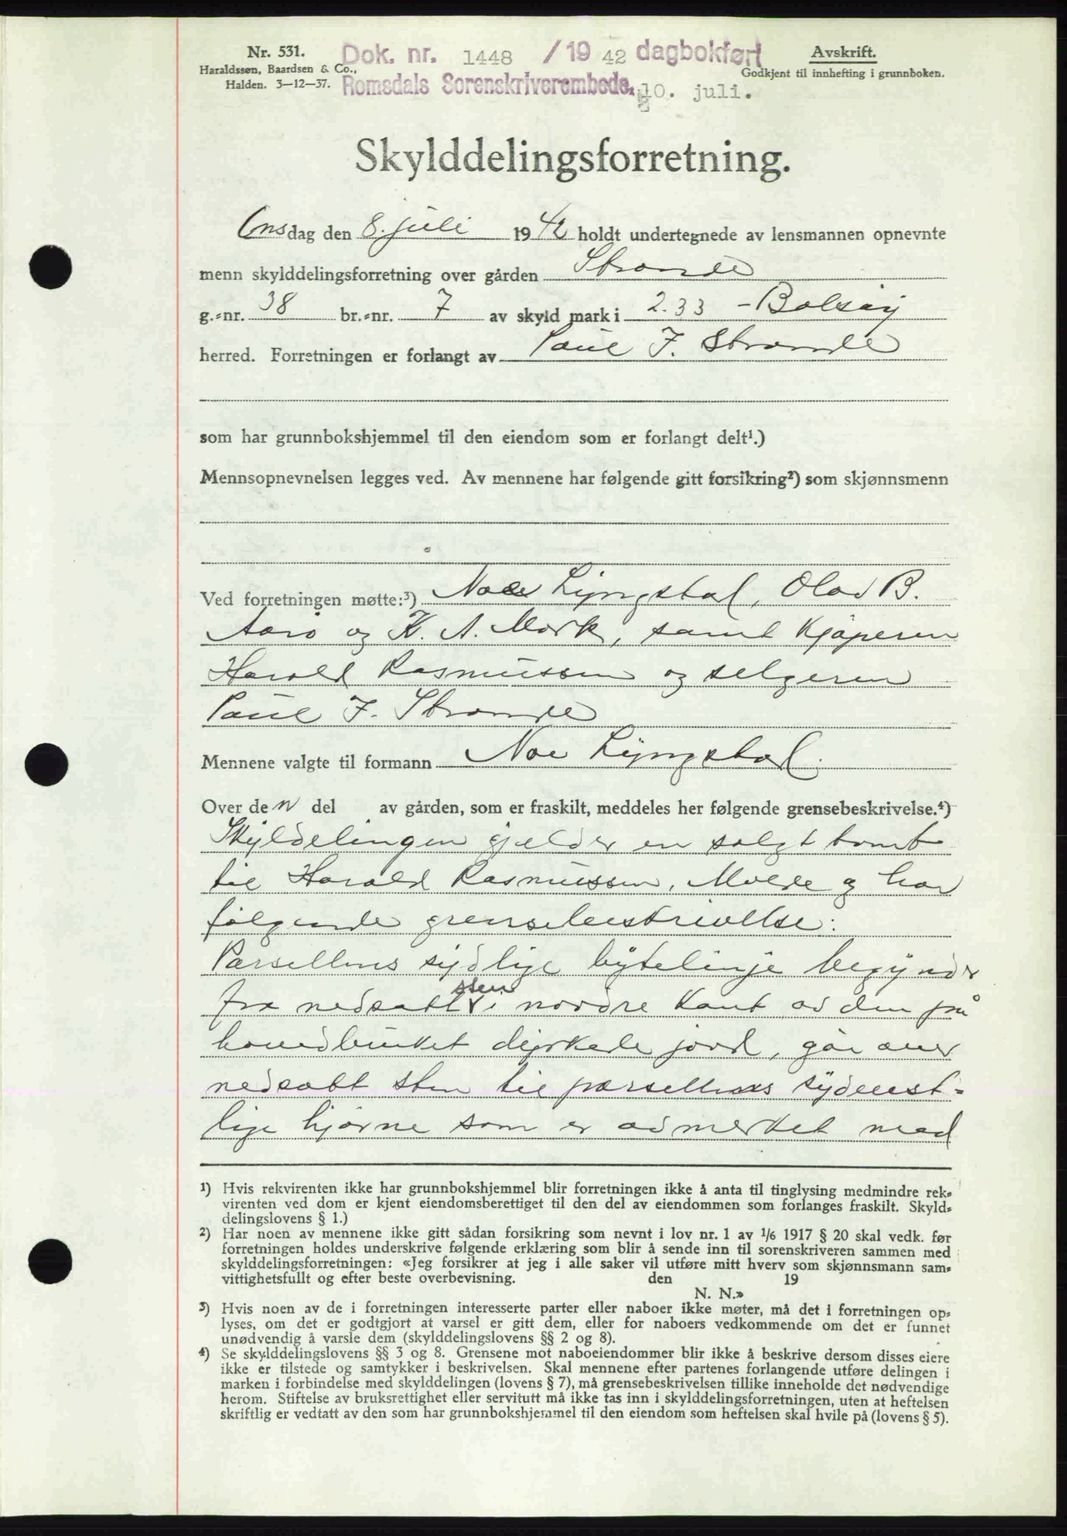 Nr. 531.
Haraldssen, Baardsen & Co.,
Halden. 3—12—37.
Dok. nr. 1448 /19 42 dagbokført
Romsdals Sorenskriverembede, 10. juli.
Avskrift.
Godkjent til innhefting i grunnboken.
Skylddelingsforretning.
Onsdag den 8. juli 1942 holdt undertegnede av lensmannen opnevnte
menn skylddelingsforretning over gården Strande
g.-nr. 38 br.-nr. 7 av skyld mark i 2.33 - Bolsøy
herred. Forretningen er forlangt av Paul F. Strande
som har grunnbokshjemmel til den eiendom som er forlangt delt¹.)
Mennsopnevnelsen legges ved. Av mennene har følgende gitt forsikring²) som skjønnsmenn
Ved forretningen møtte:³) Noe Lyngstad, Olav B.
Aarø og K. A. Mork, samt kjøperen
Harald Rasmussen og selgeren
Paul F. Strande
Mennene valgte til formann Noe Lyngstad.
Over den del av gården, som er fraskilt, meddeles her følgende grensebeskrivelse.⁴)
Skyldelingen gjelder en solgt tomt
til Harald Rasmussen, Molde og har
følgende grensebeskrivelse:
Parsellens sydlige bytelinje begynder
fra nedsatt sten i nordre kant av den på
hovedbruket dyrkede jord, går over
nedsatt sten til parsellens sydvest-
lige hjørne som er avmerket med
¹) Hvis rekvirenten ikke har grunnbokshjemmel blir forretningen ikke å anta til tinglysing medmindre rek-
virenten ved dom er kjent eiendomsberettiget til den del av eiendommen som forlanges fraskilt. Skyld-
delingslovens § 1.)
²) Har noen av mennene ikke gitt sådan forsikring som nevnt i lov nr. 1 av 1/6 1917 § 20 skal vedk. før
forretningen holdes underskrive følgende erklæring som blir å sende inn til sorenskriveren sammen med
skylddelingsforretningen: «Jeg forsikrer at jeg i alle saker vil utføre mitt hverv som skjønnsmann sam-
vittighetsfullt og efter beste overbevisning. den 19
N. N.»
³) Hvis noen av de i forretningen interesserte parter eller naboer ikke møter, må det i forretningen op-
lyses, om det er godtgjort at varsel er gitt dem, eller for naboers vedkommende om det er funnet
unødvendig å varsle dem (skylddelingslovens §§ 2 og 8).
⁴) Se skylddelingslovens §§ 3 og 8. Grensene mot naboeiendommer blir ikke å beskrive dersom disses eiere
ikke er tilstede og samtykker i beskrivelsen. Skal mennene efter partenes forlangende utføre delingen i
marken i forbindelse med skylddelingen (lovens § 7), må grensebeskrivelsen tillike inneholde det nødvendige
herom. Stiftelse av bruksrettighet eller servitutt må ikke tas inn i skylddelingsforretningen, uten at heftelsen
skriftlig er vedtatt av den som har grunnbokshjemmel til den eiendom som heftelsen skal hvile på (lovens § 5).